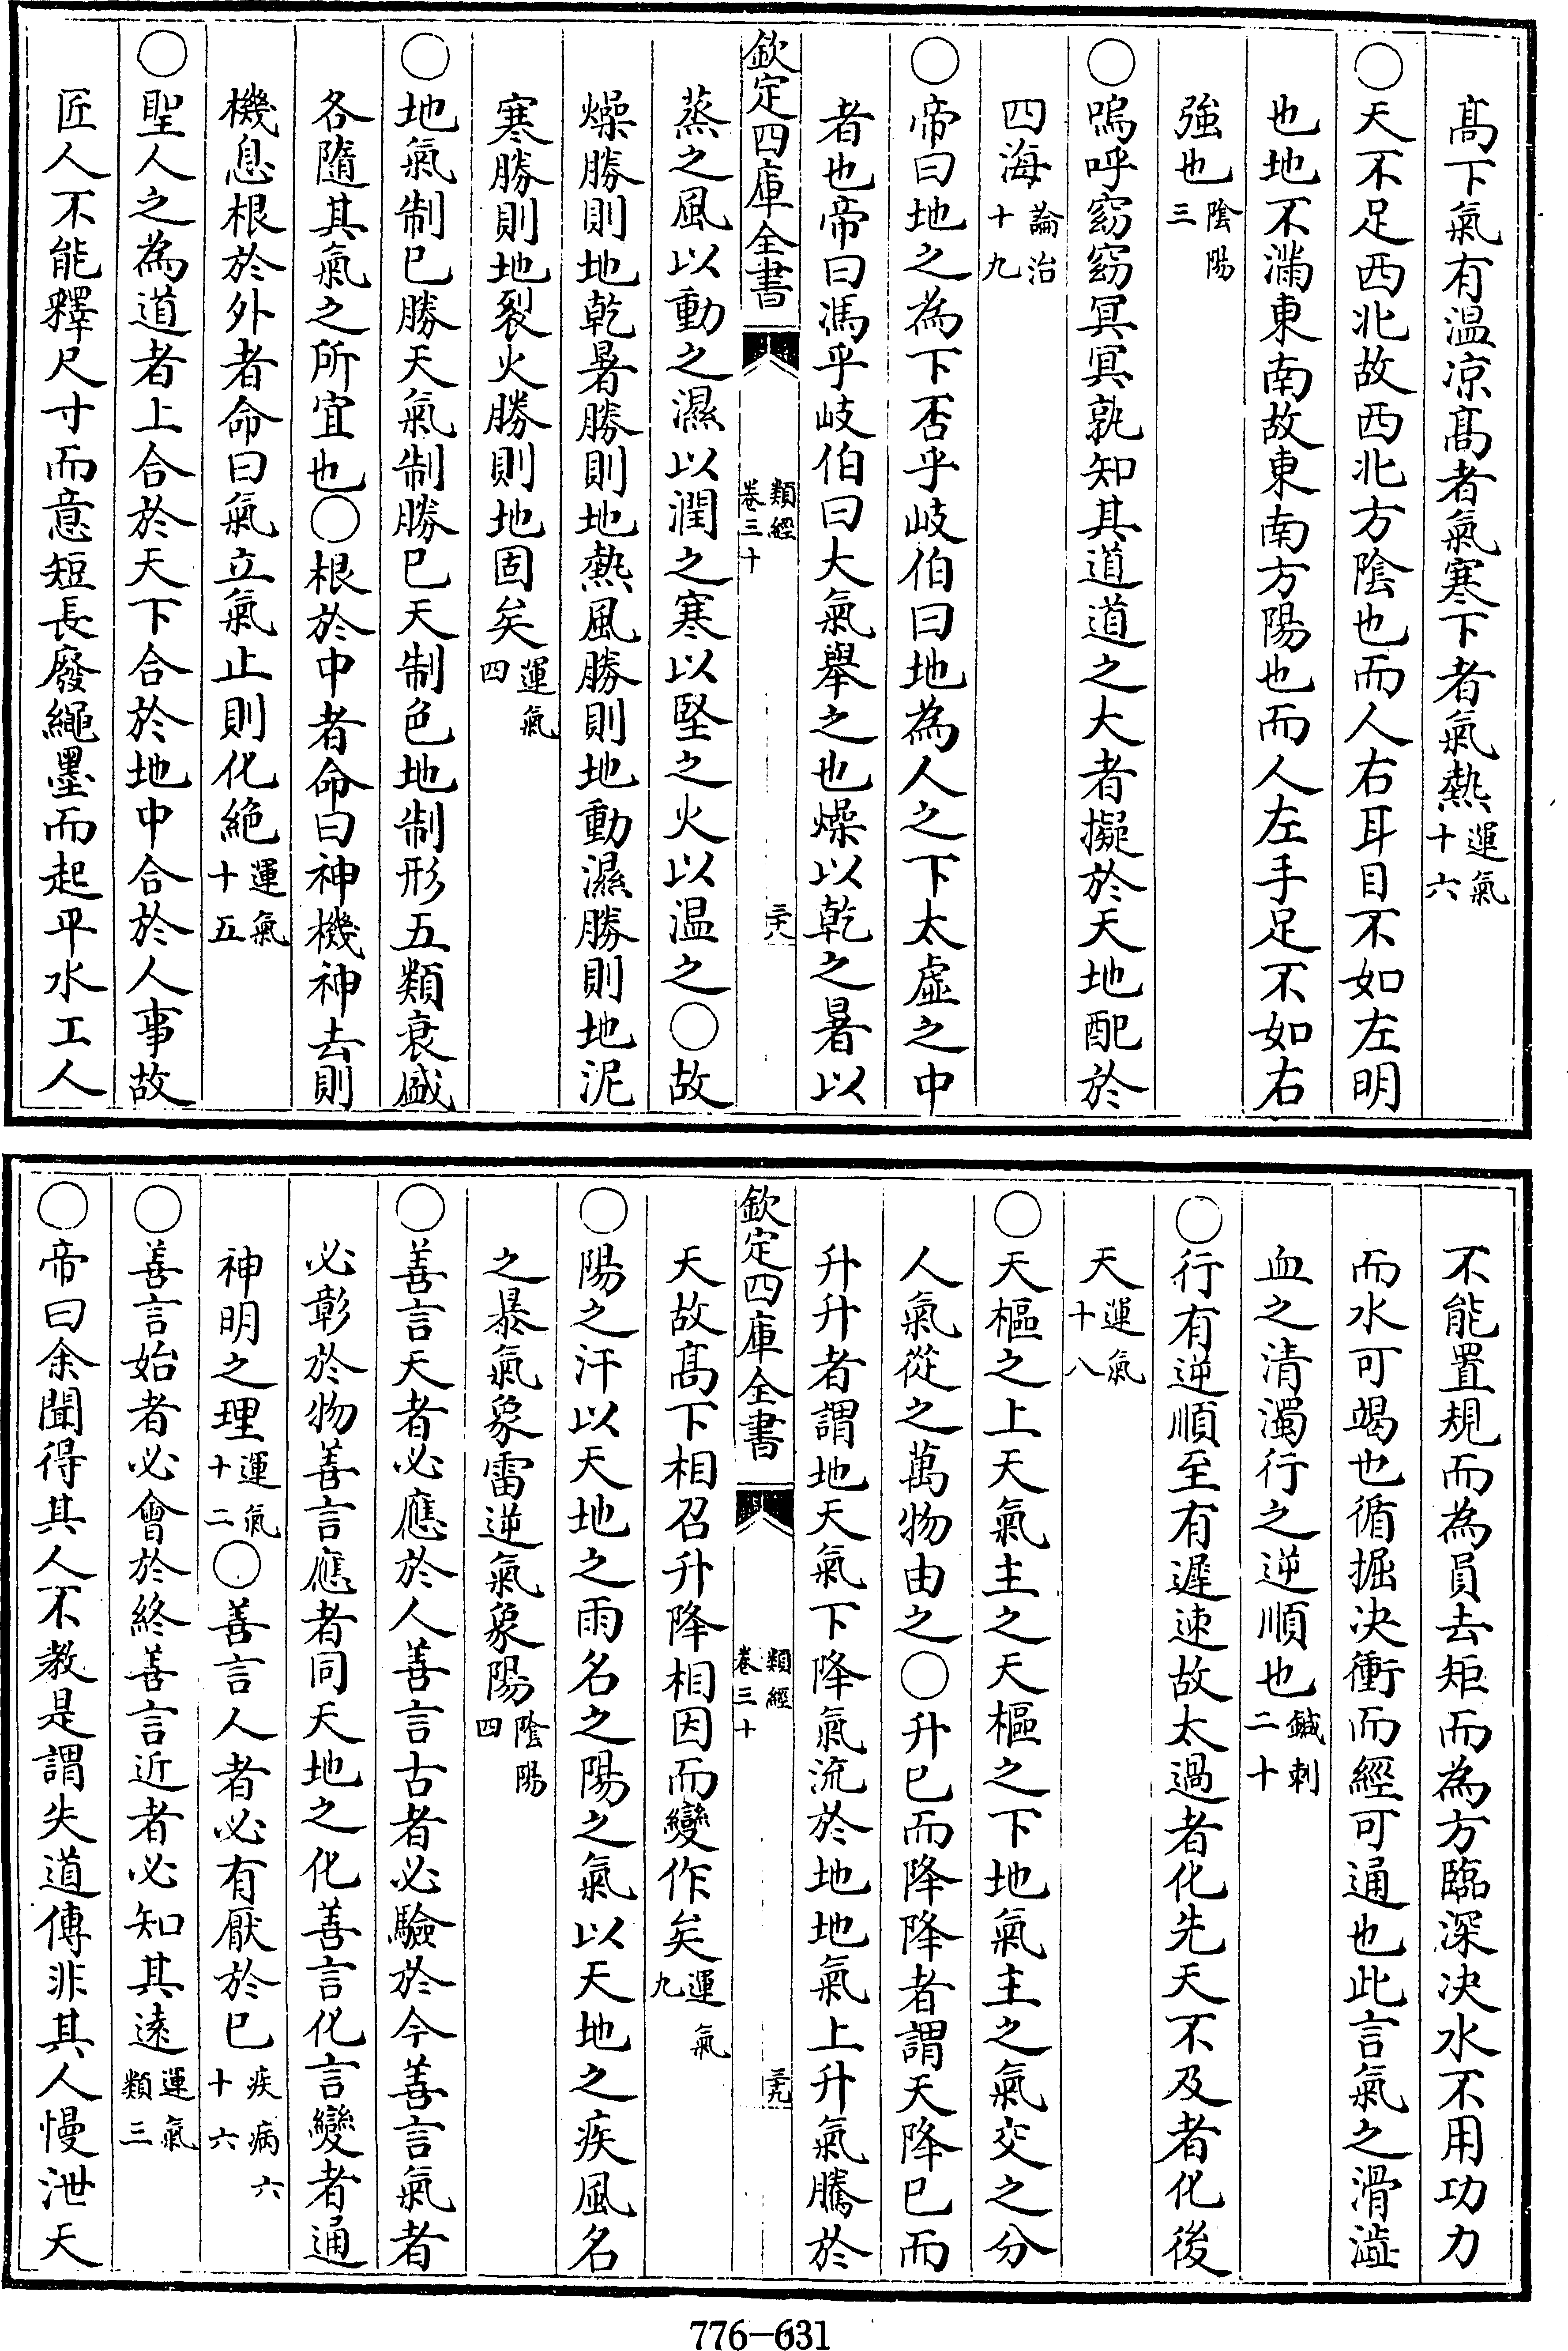 高下氣有温凉髙者氣寒下者氣熱運氣十六
○天不足西北故西北方陰也而人右耳目不如左明
也地不滿東南故東南方陽也而人左手足不如右
強也陰陽三
○嗚呼窈窈冥冥孰知其道道之大者擬於天地配於
四海論治十九
○帝曰地之為下否乎岐伯曰地為人之下太虛之中
者也帝曰馮乎岐伯曰大氣舉之也燥以乾之暑以
欽定四庫全書 類經卷三十 三十八
蒸之風以動之濕以潤之寒以堅之火以温之○故
燥勝則地乾暑勝則地熱風勝則地動濕勝則地泥
寒勝則地裂火勝則地固矣運氣四
○地氣制巳勝天氣制勝巳天制色地制形五類衰盛
各隨其氣之所宜也○根於中者命曰神機神去則
機息根於外者命曰氣立氣止則化絶運氣十五
○聖人之為道者上合於天下合於地中合於人事故
匠人不能釋尺寸而意短長廢繩墨而起平水工人
不能置規而為員去矩而為方臨深决水不用功力
而水可竭也循掘决衝而經可通也此言氣之滑澁
血之清濁行之逆順也鍼刺二十
○行有逆順至有遲速故太過者化先天不及者化後
天運氣十八
○天樞之上天氣主之天樞之下地氣主之氣交之分
人氣從之萬物由之○升巳而降降者謂天降巳而
升升者謂地天氣下降氣流於地地氣上升氣騰於
欽定四庫全書 類經卷三十 三十九
天故髙下相召升降相因而變作矣運氣九
○陽之汗以天地之雨名之陽之氣以天地之疾風名
之暴氣象雷逆氣象陽陰陽四
○善言天者必應於人善言古者必驗於今善言氣者
必彰於物善言應者同天地之化善言化言變者通
神明之理運氣十二○善言人者必有厭於巳疾病六十六
○善言始者必會於終善言近者必知其遠運氣類三
○帝曰余聞得其人不教是謂失道傳非其人慢泄天
776-631